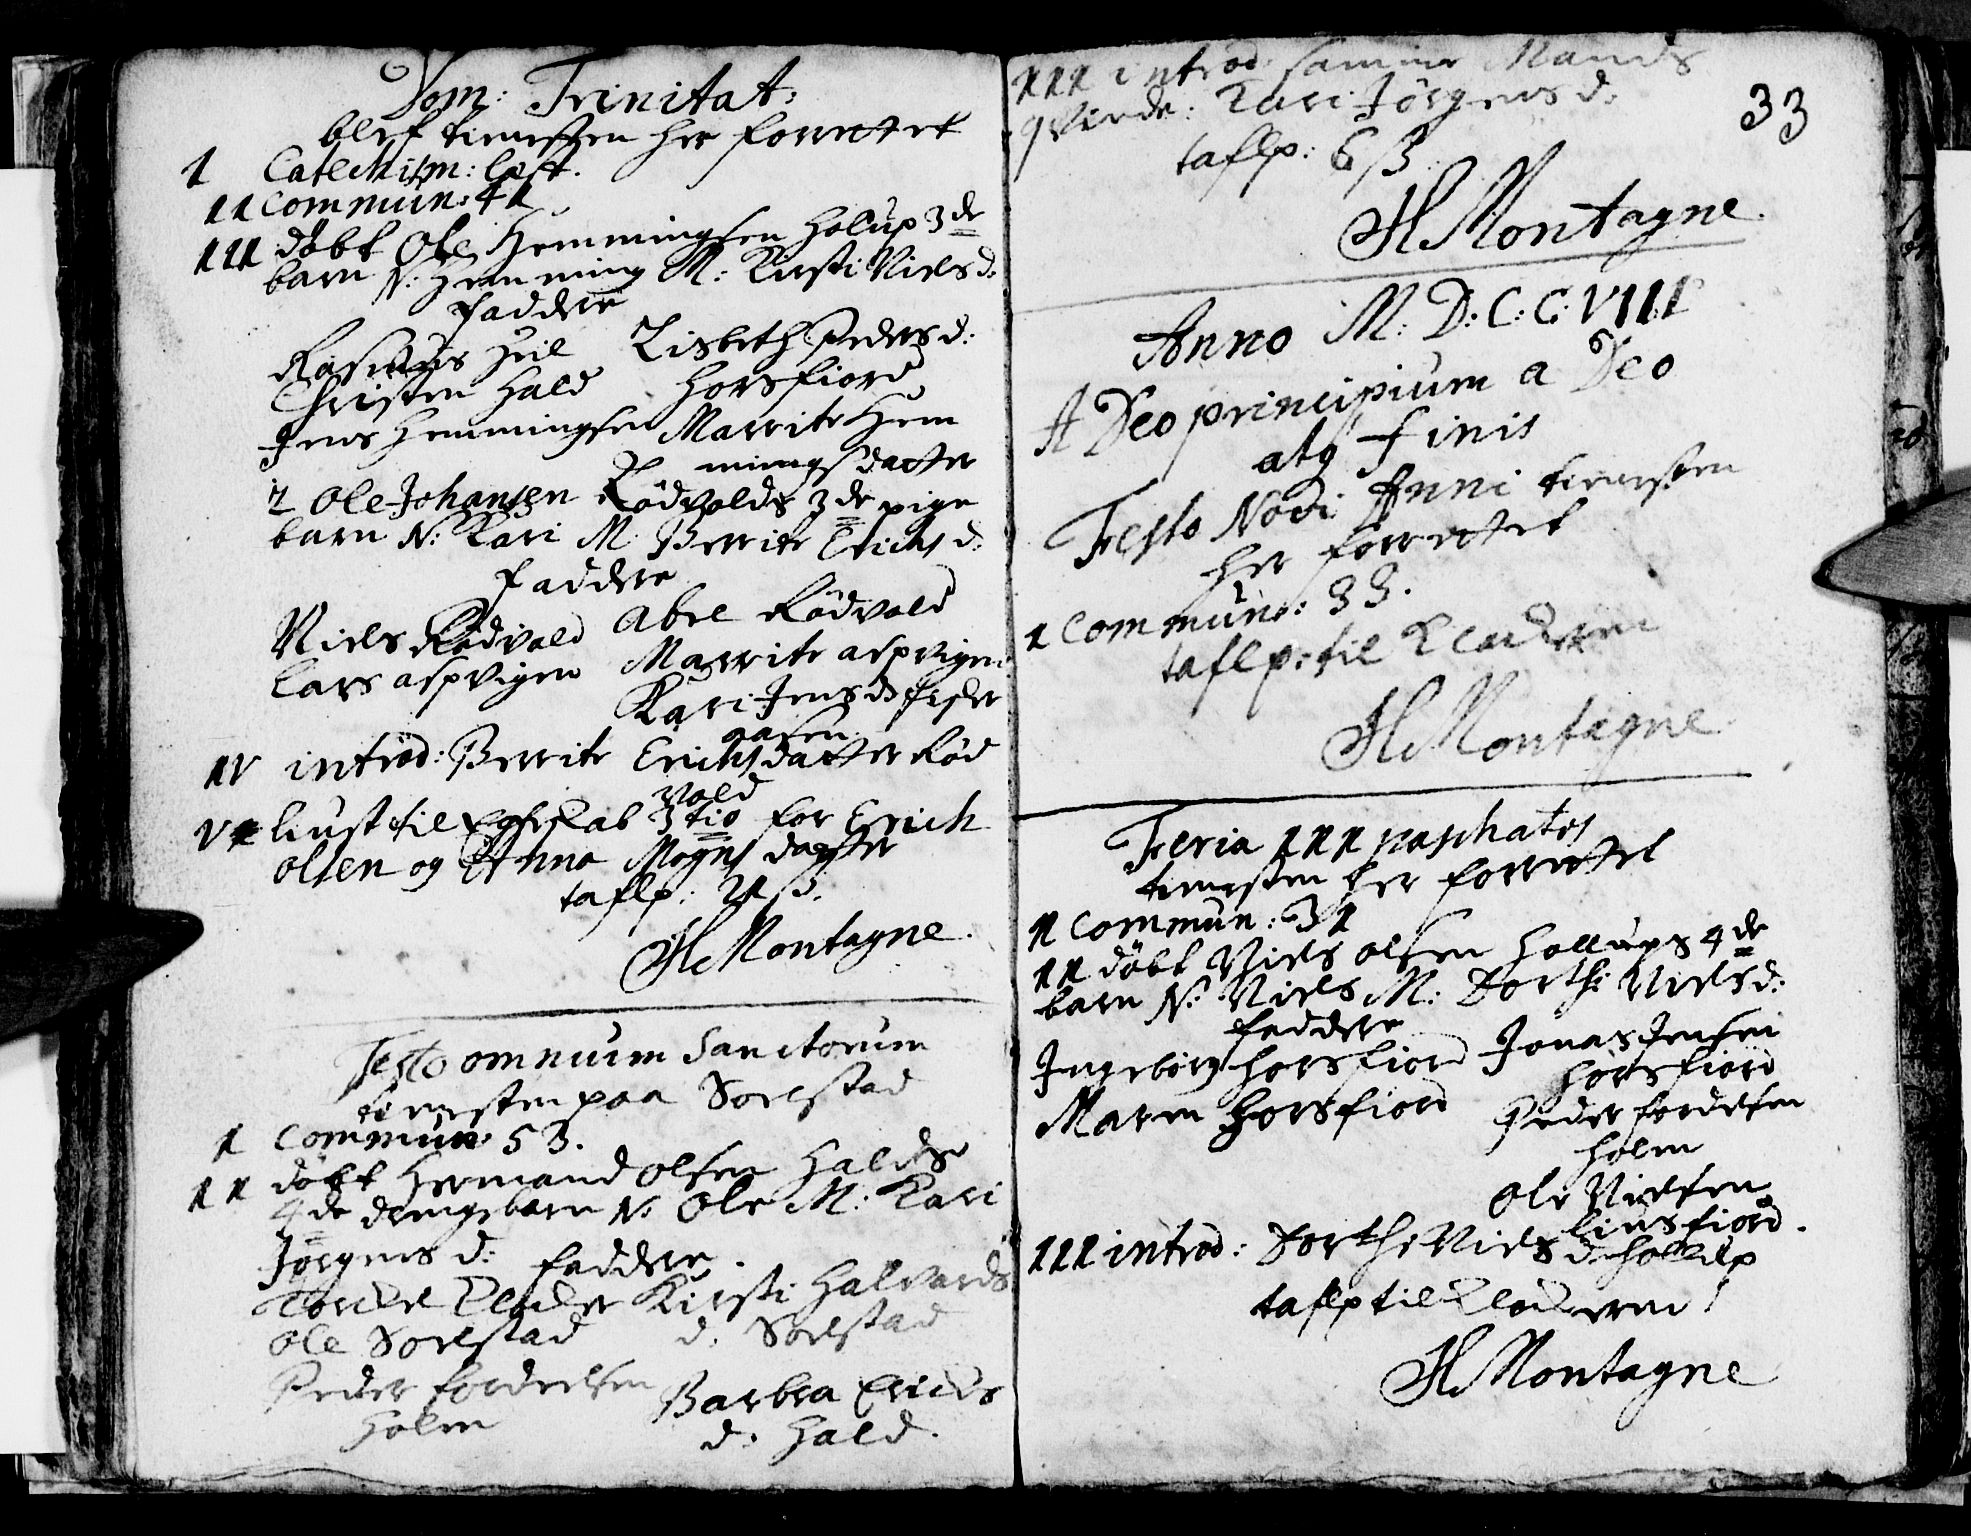 Dom: Trinitat:
blef tienesten her forrettet
I Catechism: læst.
II Commun: 41
III döbt Ole Hemmingsen Holups 3de
barn N: Hemming M: Kirsti Niels d:
Faddere
Rasmus Hiel Lisbeth Peders d:
Christen Hald Horsfiord
Jens Hemmingsen Marrite Hem
mingsdatter
2 Ole Johansen Rödvolds 3de pige
barn N: Kari M: Berrite Erichs d:
Faddere
Niels Rödvold Abel Rödvold
Lars aspvigen Marrite aspvigen
Kari Jens d:
aasen
IV introd: Berrite Erichsdatter Röd
vold
V liust til Egteskab 3tio for Erich
Olsen og Anna Mogns datter
taflp: 21 ß.
H Montagne.
Festo omnium Sanctorum
tienesten paa Soelstad
I Commun: 53.
II döbt Hermand Olsen Halds
4de drengebarn N: Ole M: Kari
Jörgens d: Faddere.
Torckel Klocker Kirsti Halvords
Ole Soelstad d: Soelstad
Peder Fordelsen Barbra Erichs
Holm d: Hald.
33
III introd: samme Mands
qvinde: Kari Jörgens d:
taflp: 6 ß
H Montagne.
Anno M: D: C: C: VIII
A Deo principium a Deo
atq finis
Festo Novi Anni tienesten
her forrettet
I Commun: 33.
taflp: til Klockeren
H Montagne
Feria III paschatos
tienesten her forrettet
I Commun: 31
II döbt Niels Olsen Hollups 4de
barn N: Niels M: Dorthe Niels d:
Faddere
Ingeborg Horsfiord Jonas Jensen
Horsfiord
Maren Horsfiord Peder Fordelsen
Holm
Ole Nielsen
liusfiord.
III introd: Dorthe Niels d: Hollup
taflp til Klockeren
H Montagne